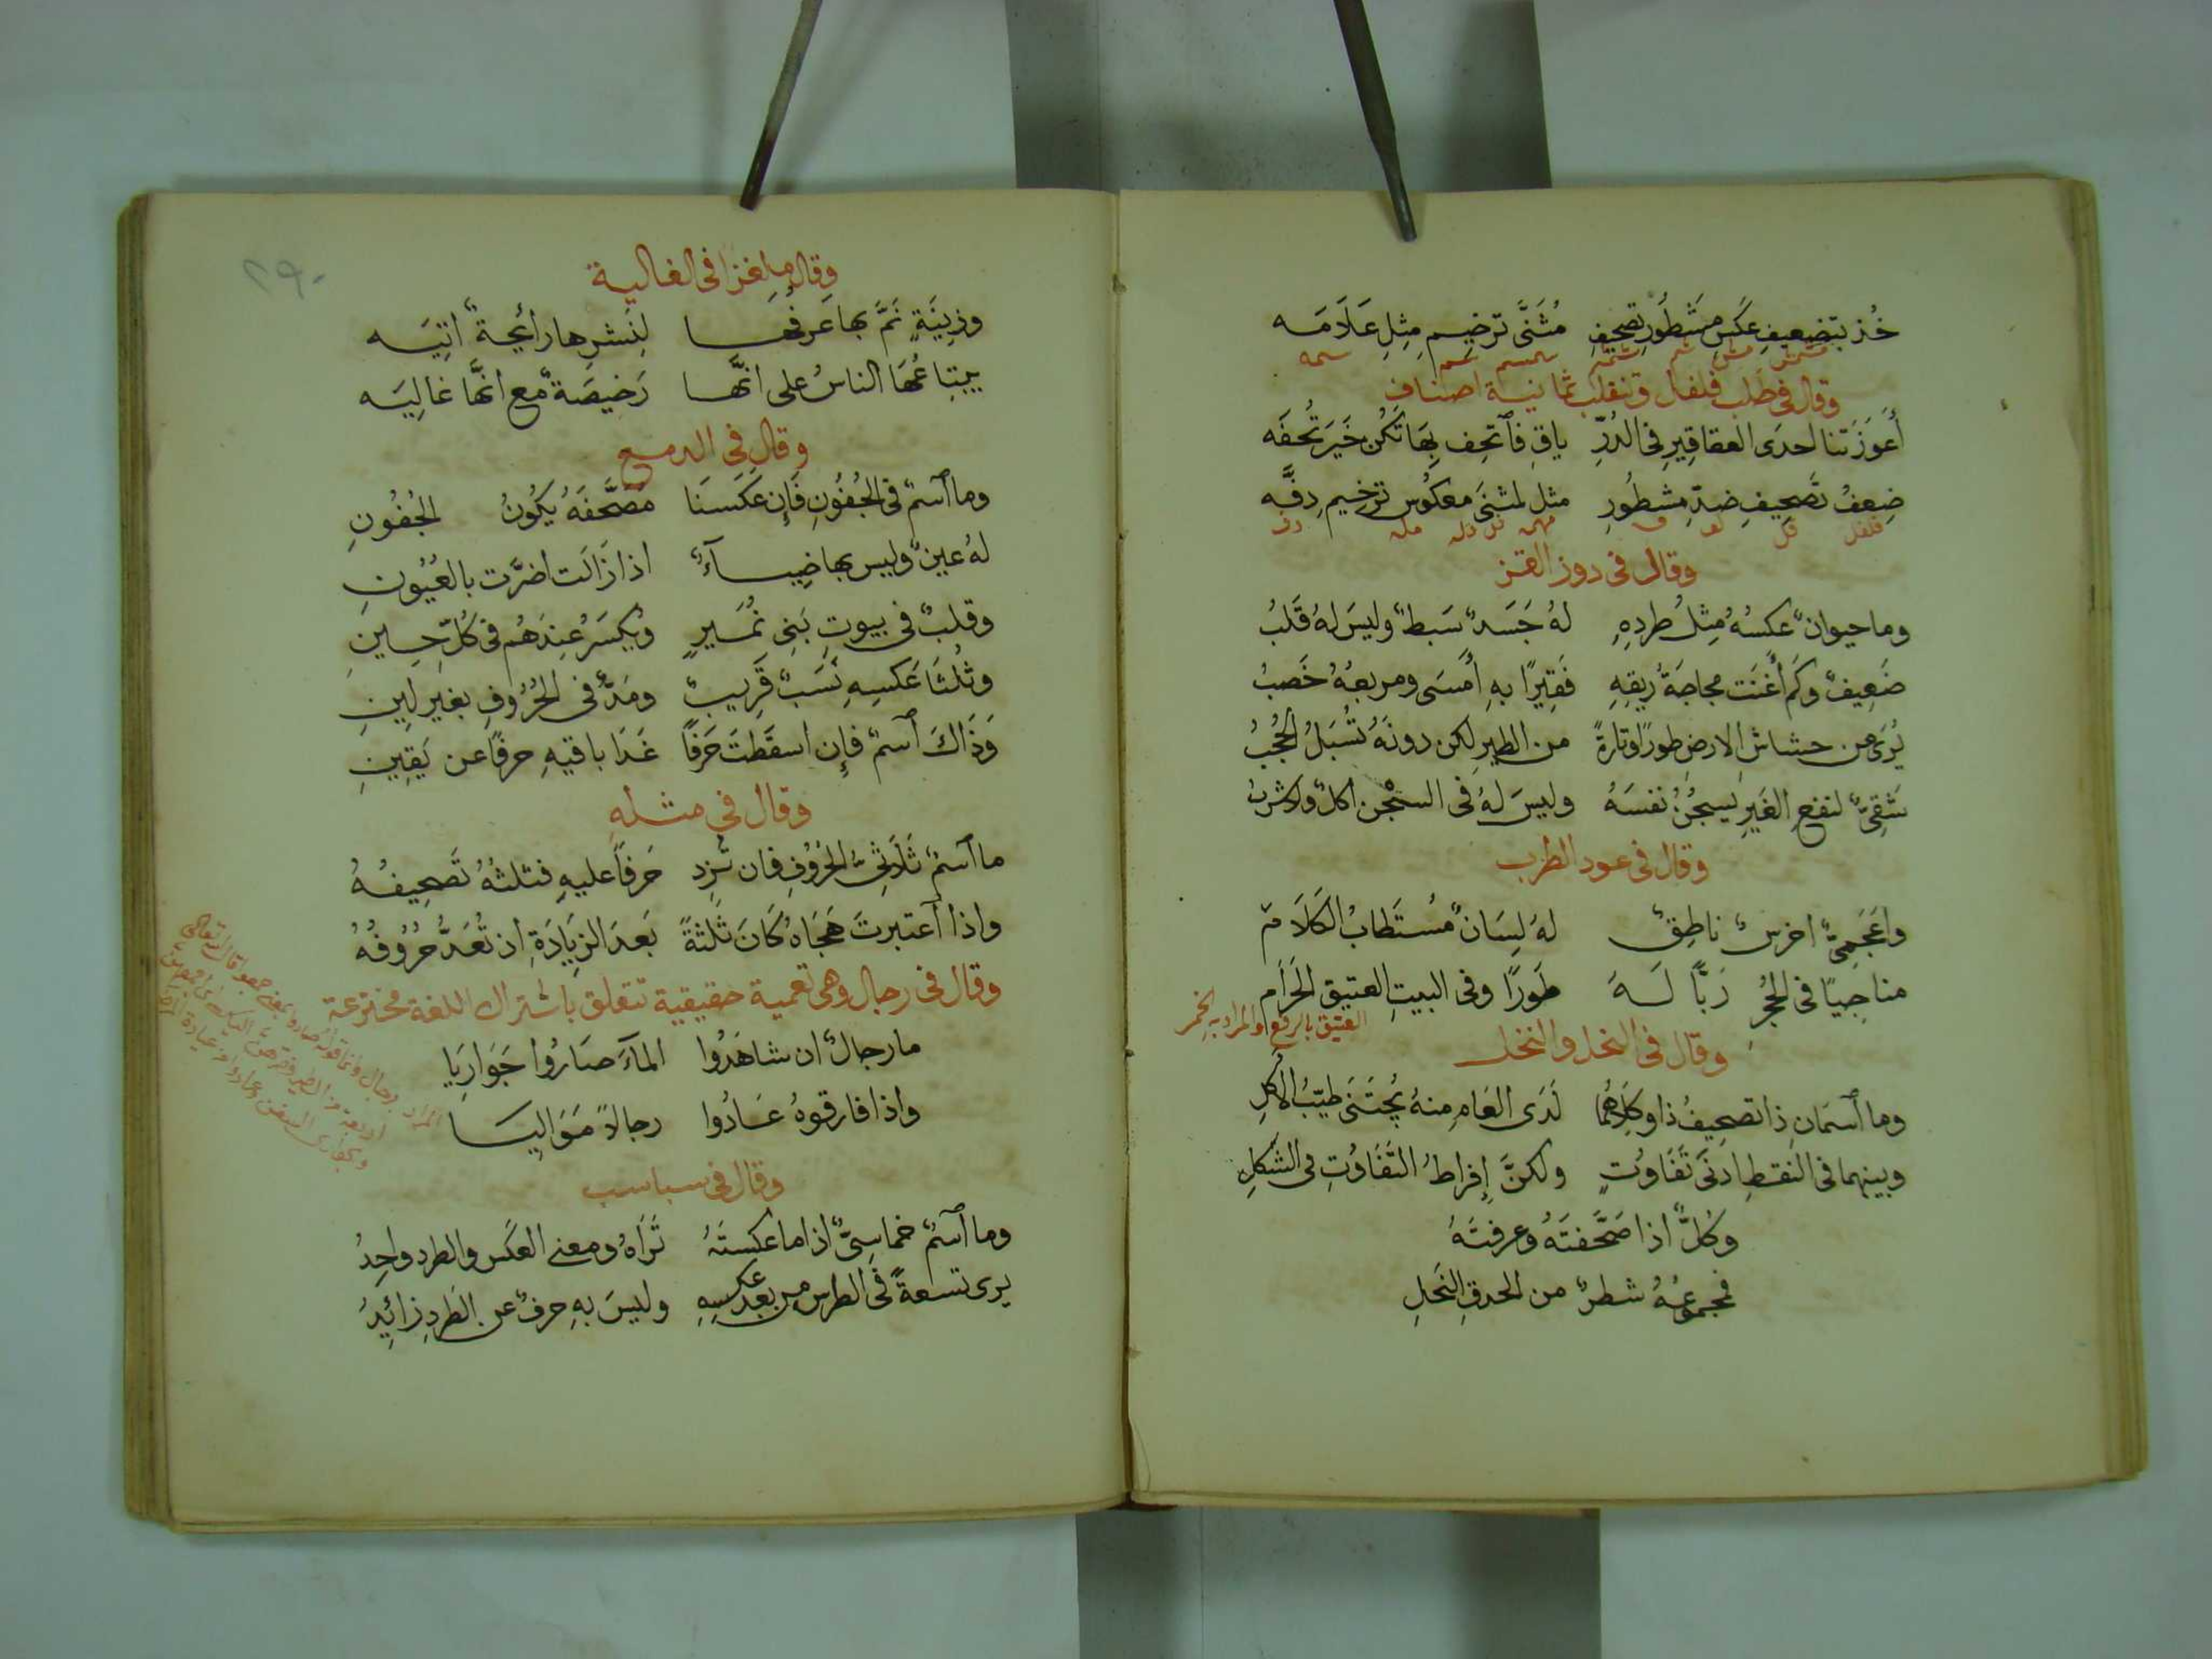 خُذ بتضعيفِ عكسِ مشطُورِ تصحيفِ مُثنَّى ترخيمِ مثلِ عَلَامَه
وقال في طلب فلفل وتنقلب ثمانية اصناف
أَعوَزَتنا احدَى العقاقِيرِ في الدُرِّ ياقِ فٱتحِف بِهَا تكُن خَيرَ تُحفَه
ضِعفُ تَصحِيفِ ضِدِّ مشطُورِ مثل لمثنَى معكُوس ترخِيمِ دِفَّه
وقال في دود القز
وما حيوانٌ عكسُهُ مِثلُ طردِهِ لهُ جَسَدٌ سَبطٌ وليسَ لهُ قَلبُ
ضَعِيفٌ وكَم أَغنَت مجاجَةُ رِيقِهِ فَقِيرًا بهِ أَمسَى ومربعُهُ خَصبُ
يُرَى من حشاشِ الارضِ طورًا وتارةً من الطيرِ لكن دونَهُ تُسبَلُ الحُجبُ
شَقِيٌّ لنفعِ الغيرِ يسجُنُ نفسَهُ وليسَ لهُ في السجْنِ اكلٌ ولا شربُ
وقال في عود الطرب
واَعجَمِيٍّ اخرسٍ ناطِقٍ لهُ لِسَانٌ مُستَطابُ الكَلَام
مناجِيًا في الحُجرِ رَبًّا لَهُ طَورًا وفي البيتِ العتيق الحَرَام
العتيق بالرفع والمراد به الخمر
وقال في النحل والنخل
وما ٱسمَانِ ذا تصحِيفُ ذا وكِلاهُما لَدَى العَامِ مِنهُ يُجتَنَى طيّبُ الأُكلِ
وبينهما في النقطِ ادنَى تَفَاوُتٍ ولكنَّ إِفراطُ التَّفَاوُتِ في الشكلِ
وكُلٌّ اذا صَحَّفتَهُ وعرفتَهُ
فمجموعُهُ شطرٌ من الحدقِ النجلِ
وقال ملغزا في الغالية
وزِينَةٍ نَمَّ بها عَرفُها لِنَشرِها رائحةٌ اتِيَه
يبتاعُها الناسُ على انَّها رَخيصَةٌ مع انَّها غالِيَه
وقال في الدمع
وما ٱسمٌ في الجُفُونِ فَإِن عَكَسنَا مُصَحَّفَهُ يكُونُ الجُفُونِ
لهُ عينٌ وليس بها ضِياءٌ اذا زَالَت اضرَّت بالعُيُونِ
وقلبٌ في بيوتِ بَنِي نُمَيرٍ ويُكسَرُ عِندَهُم في كُلِّ حِينِ
وثُلثَا عَكسِهِ نَسَبٌ قَرِيبٌ ومَدٌّ في الحُرُوفِ بغيرِ لِينِ
وَذَاكَ ٱسمٌ فإِن اسقَطتَ حَرفًا غَدَا باقيهِ حرفًا عن يَقِينِ
وقال في مثله
ما ٱسمٌ ثَلَاثِيُّ الحُرُوفِ فان تُزِد حَرفًا عليهِ فثلثُهُ تَصحِيفُهُ
واذا ٱعتبرتَ هِجَاهُ كَانَ ثَلثةً بَعدَ الزِيَادَةِ ان تُعَدَّ حُرُوفُهُ
وقال في رجال وهي تعمية حقيقية تتعلق باشتراك اللغة مخترعة
ما رجالٌ ان شاهَدُوا الماءَ صَارُوا جَوَارِيَا
واذا فارقوهُ عَادُوا رجالاً مَوَالِيَا
وقال في سباسب
وما ٱسمٌ خماسِيٌّ اذا ما عكستَهُ تَرَاهُ ومعنى العكس والطرد واحِدُ
يرى تسعةً في الطرسِ من بعد عكسِهِ وليسَ بهِ حرفٌ عن الطَردِ زائِدُ
٢٩٠